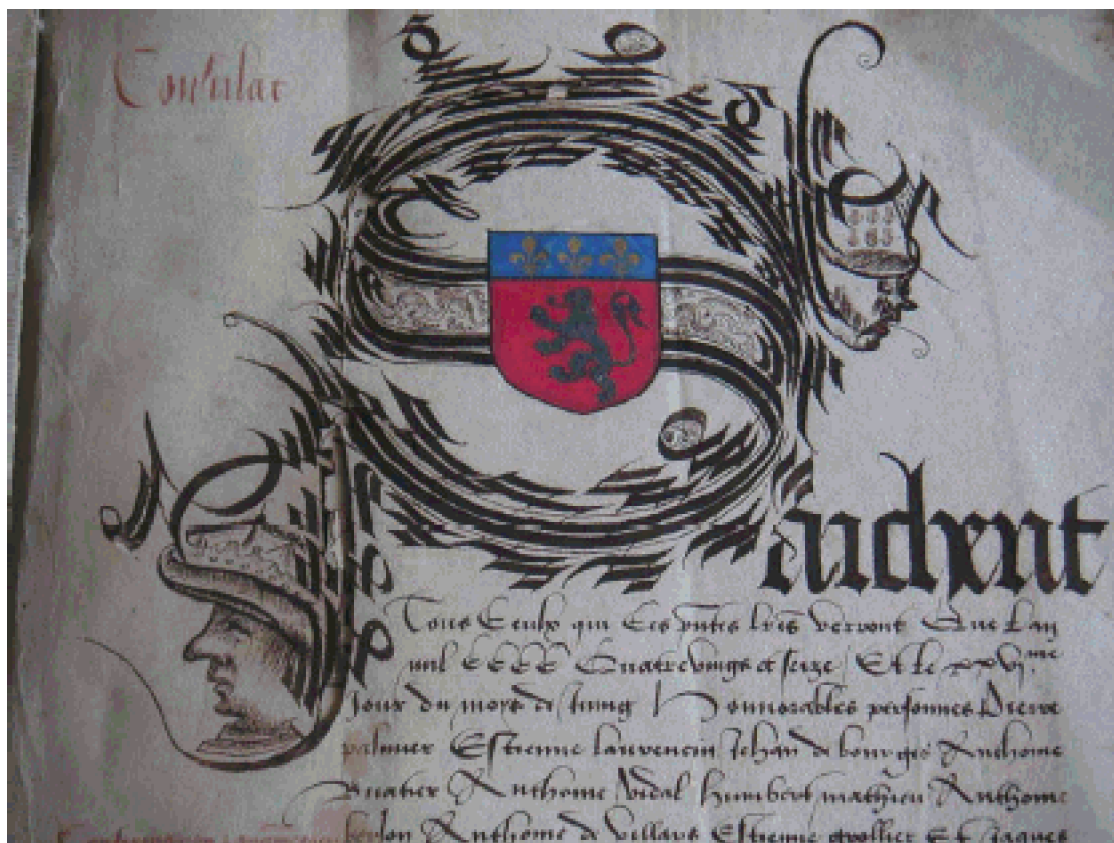 Consular
Saichent
Tous Ceulx qui Ces pñtes lrẽs verront Que Lan
mil CCCC Quatrevings et seize / Et le xxvj.me
Jour du moys de Juing Honnorables personnes Pierre
palmier Estienne laurencin Jehan de bourges Anthoine
buatier Anthoine vidal humbert mathieu Anthoine
Anthoine de Villars Estienne grollier Et Jaques